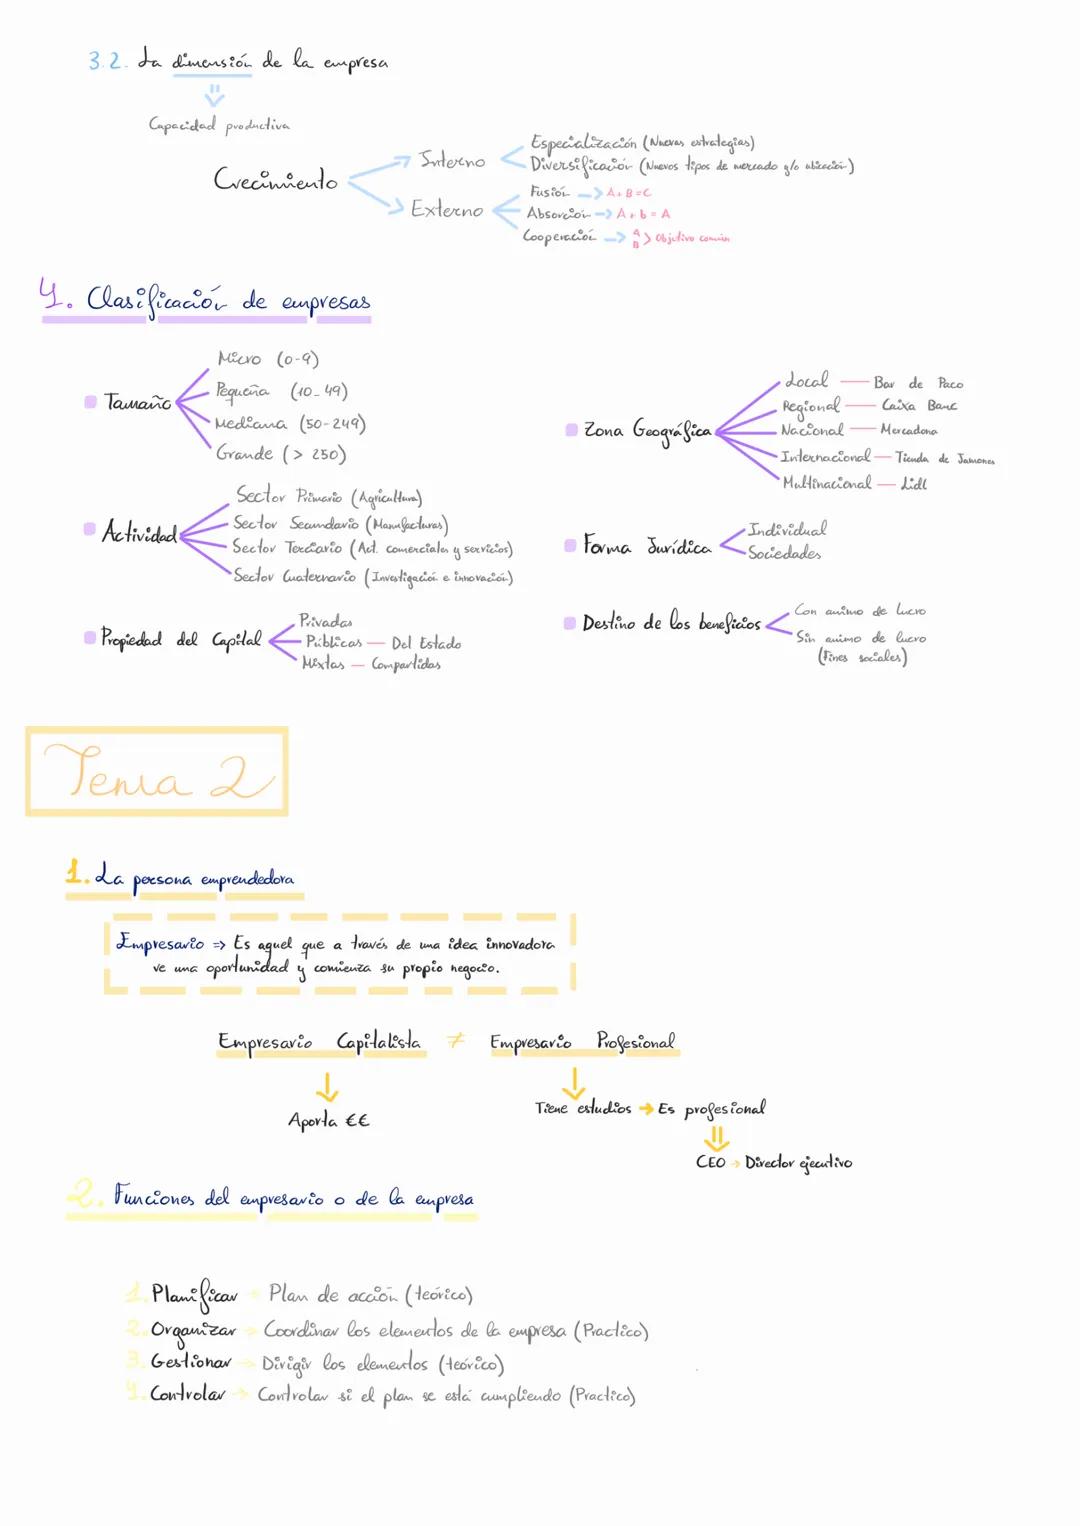 3.2. La dimensión de la empresa
Capacidad productiva
Crecimiento
Interno
Especialización (Nuevas estrategias)
Diversificación (Nuevos tipos de mercado y/o ubicación)
Externo
Fusión → A+B=C
Absorción → A+b=A
Cooperación → A B > Objetivo común
4. Clasificación de empresas
Tamaño
Micro (0-9)
Pequeña (10-49)
Mediana (50-249)
Grande (> 250)
Zona Geográfica
Local — Bar de Paco
Regional — Caixa Banc
Nacional — Mercadona
Internacional — Tienda de Jamones
Multinacional — Lidl
Actividad
Sector Primario (Agricultura)
Sector Secundario (Manufacturas)
Sector Terciario (Act. comerciales y servicios)
Sector Cuaternario (Investigación e innovación)
Forma Jurídica
Individual
Sociedades
Propiedad del Capital
Privadas
Públicas — Del Estado
Mixtas — Compartidas
Destino de los beneficios
Con animo de lucro
Sin animo de lucro
(Fines sociales)
Tema 2
1. La persona emprendedora
Empresario => Es aquel que a través de una idea innovadora
ve una oportunidad y comienza su propio negocio.
Empresario Capitalista ≠ Empresario Profesional
Aporta €€
Tiene estudios → Es profesional
CEO → Director ejecutivo
2. Funciones del empresario o de la empresa
1. Planificar → Plan de acción (teórico)
2. Organizar → Coordinar los elementos de la empresa (Practico)
3. Gestionar → Dirigir los elementos (teórico)
4. Controlar → Controlar si el plan se está cumpliendo (Practico)